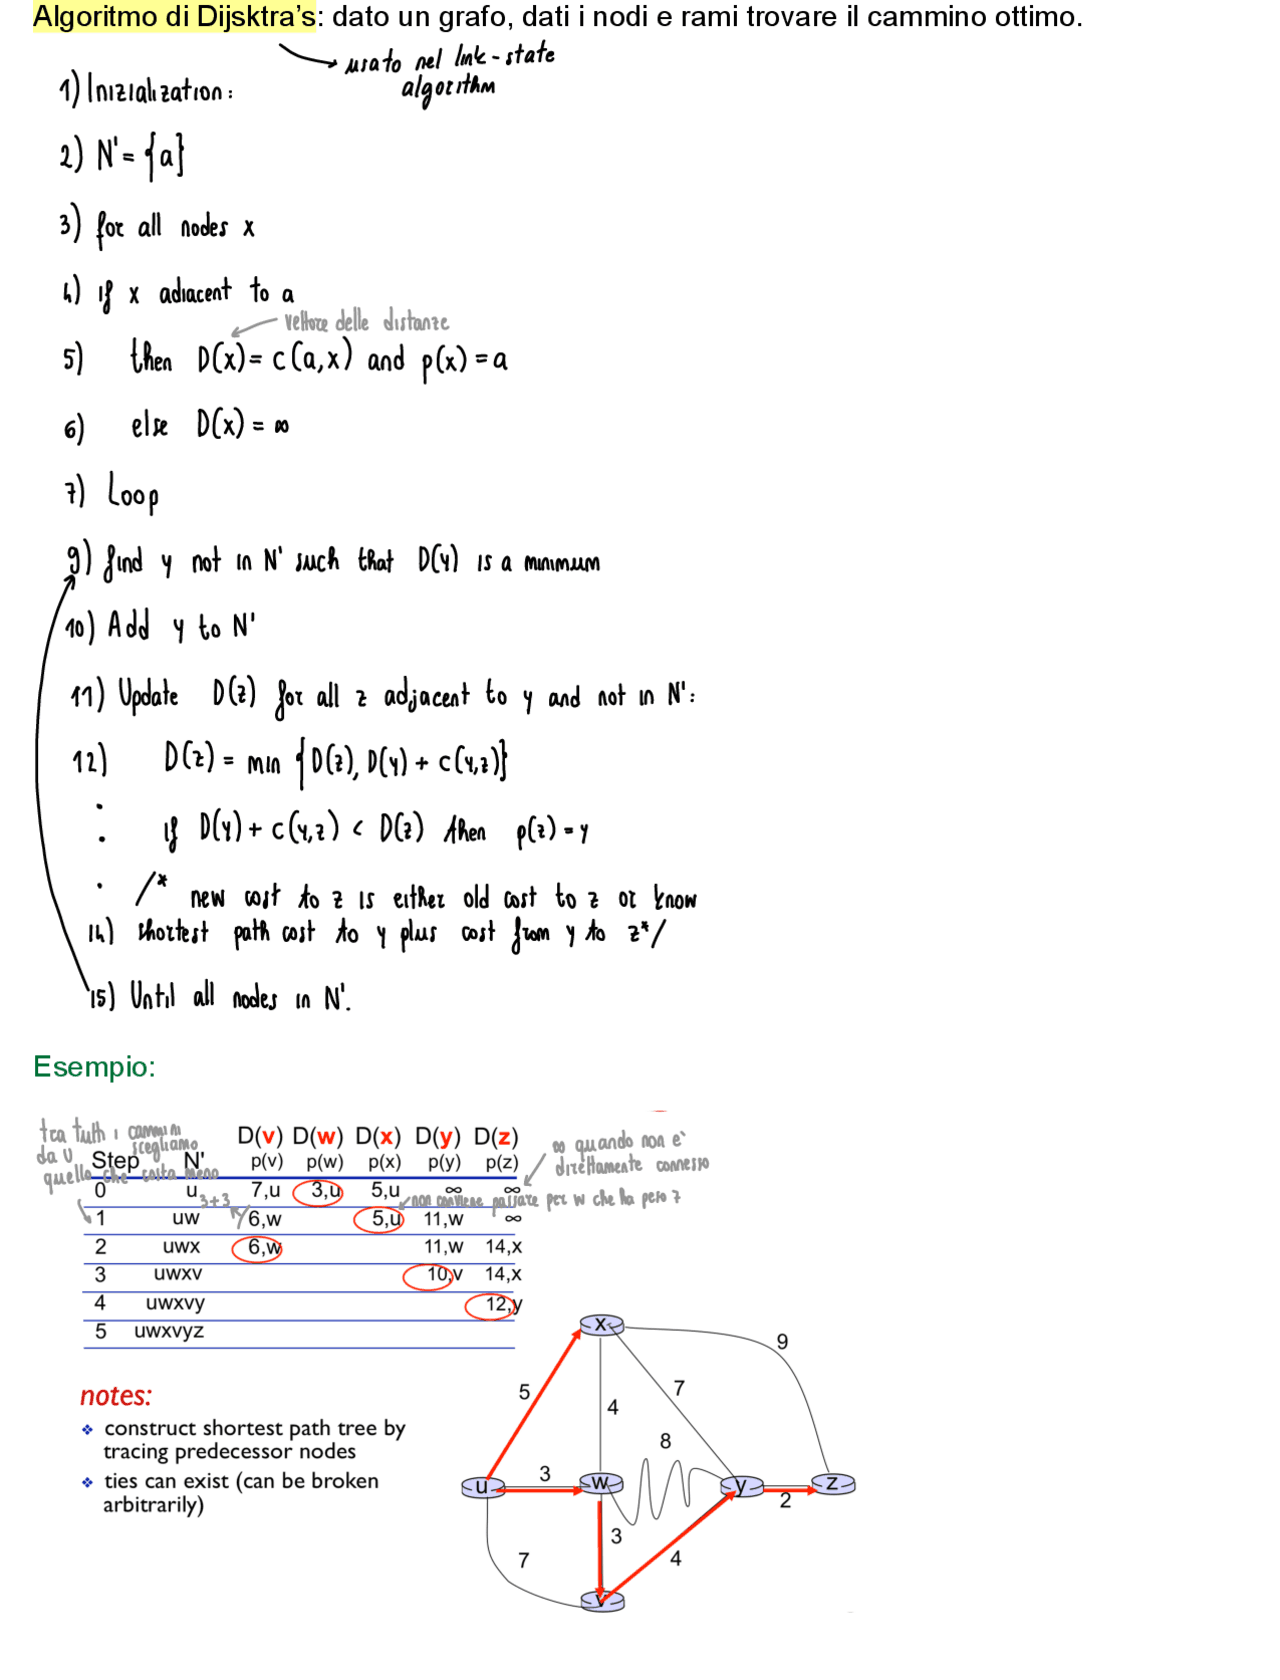 Algoritmo di Dijsktra's: dato un grafo, dati i nodi e rami trovare il cammino ottimo.
usato nel link-state
algorithm
1) Inizialization:
2) N' = {a}
3) for all nodes x
4) if x adiacent to a
vettore delle distanze
5) then D(x) = c(a,x) and p(x) = a
6) else D(x) = ∞
7) Loop
9) find y not in N' such that D(y) is a minimum
10) Add y to N'
11) Update D(z) for all z adjacent to y and not in N':
12) D(z) = min {D(z), D(y) + c(y,z)}
if D(y) + c(y,z) < D(z) then p(z) = y
/* new cost to z is either old cost to z or know
14) shortest path cost to y plus cost from y to z*/
15) Until all nodes in N'.
Esempio:
tra tutti i cammini
da u scegliamo
quello che costa meno
D(v) D(w) D(x) D(y) D(z)
Step N' p(v) p(w) p(x) p(y) p(z)
∞ quando non è
direttamente connesso
0 u 7,u 3,u 5,u ∞ ∞
3+3
non conviene passare per w che ha peso 7
1 uw 6,w 5,u 11,w ∞
2 uwx 6,w 11,w 14,x
3 uwxv 10,v 14,x
4 uwxvy 12,y
5 uwxvyz
notes:
❖ construct shortest path tree by
tracing predecessor nodes
❖ ties can exist (can be broken
arbitrarily)
x
9
5
4
7
8
u
3
w
y
2
z
3
7
4
v